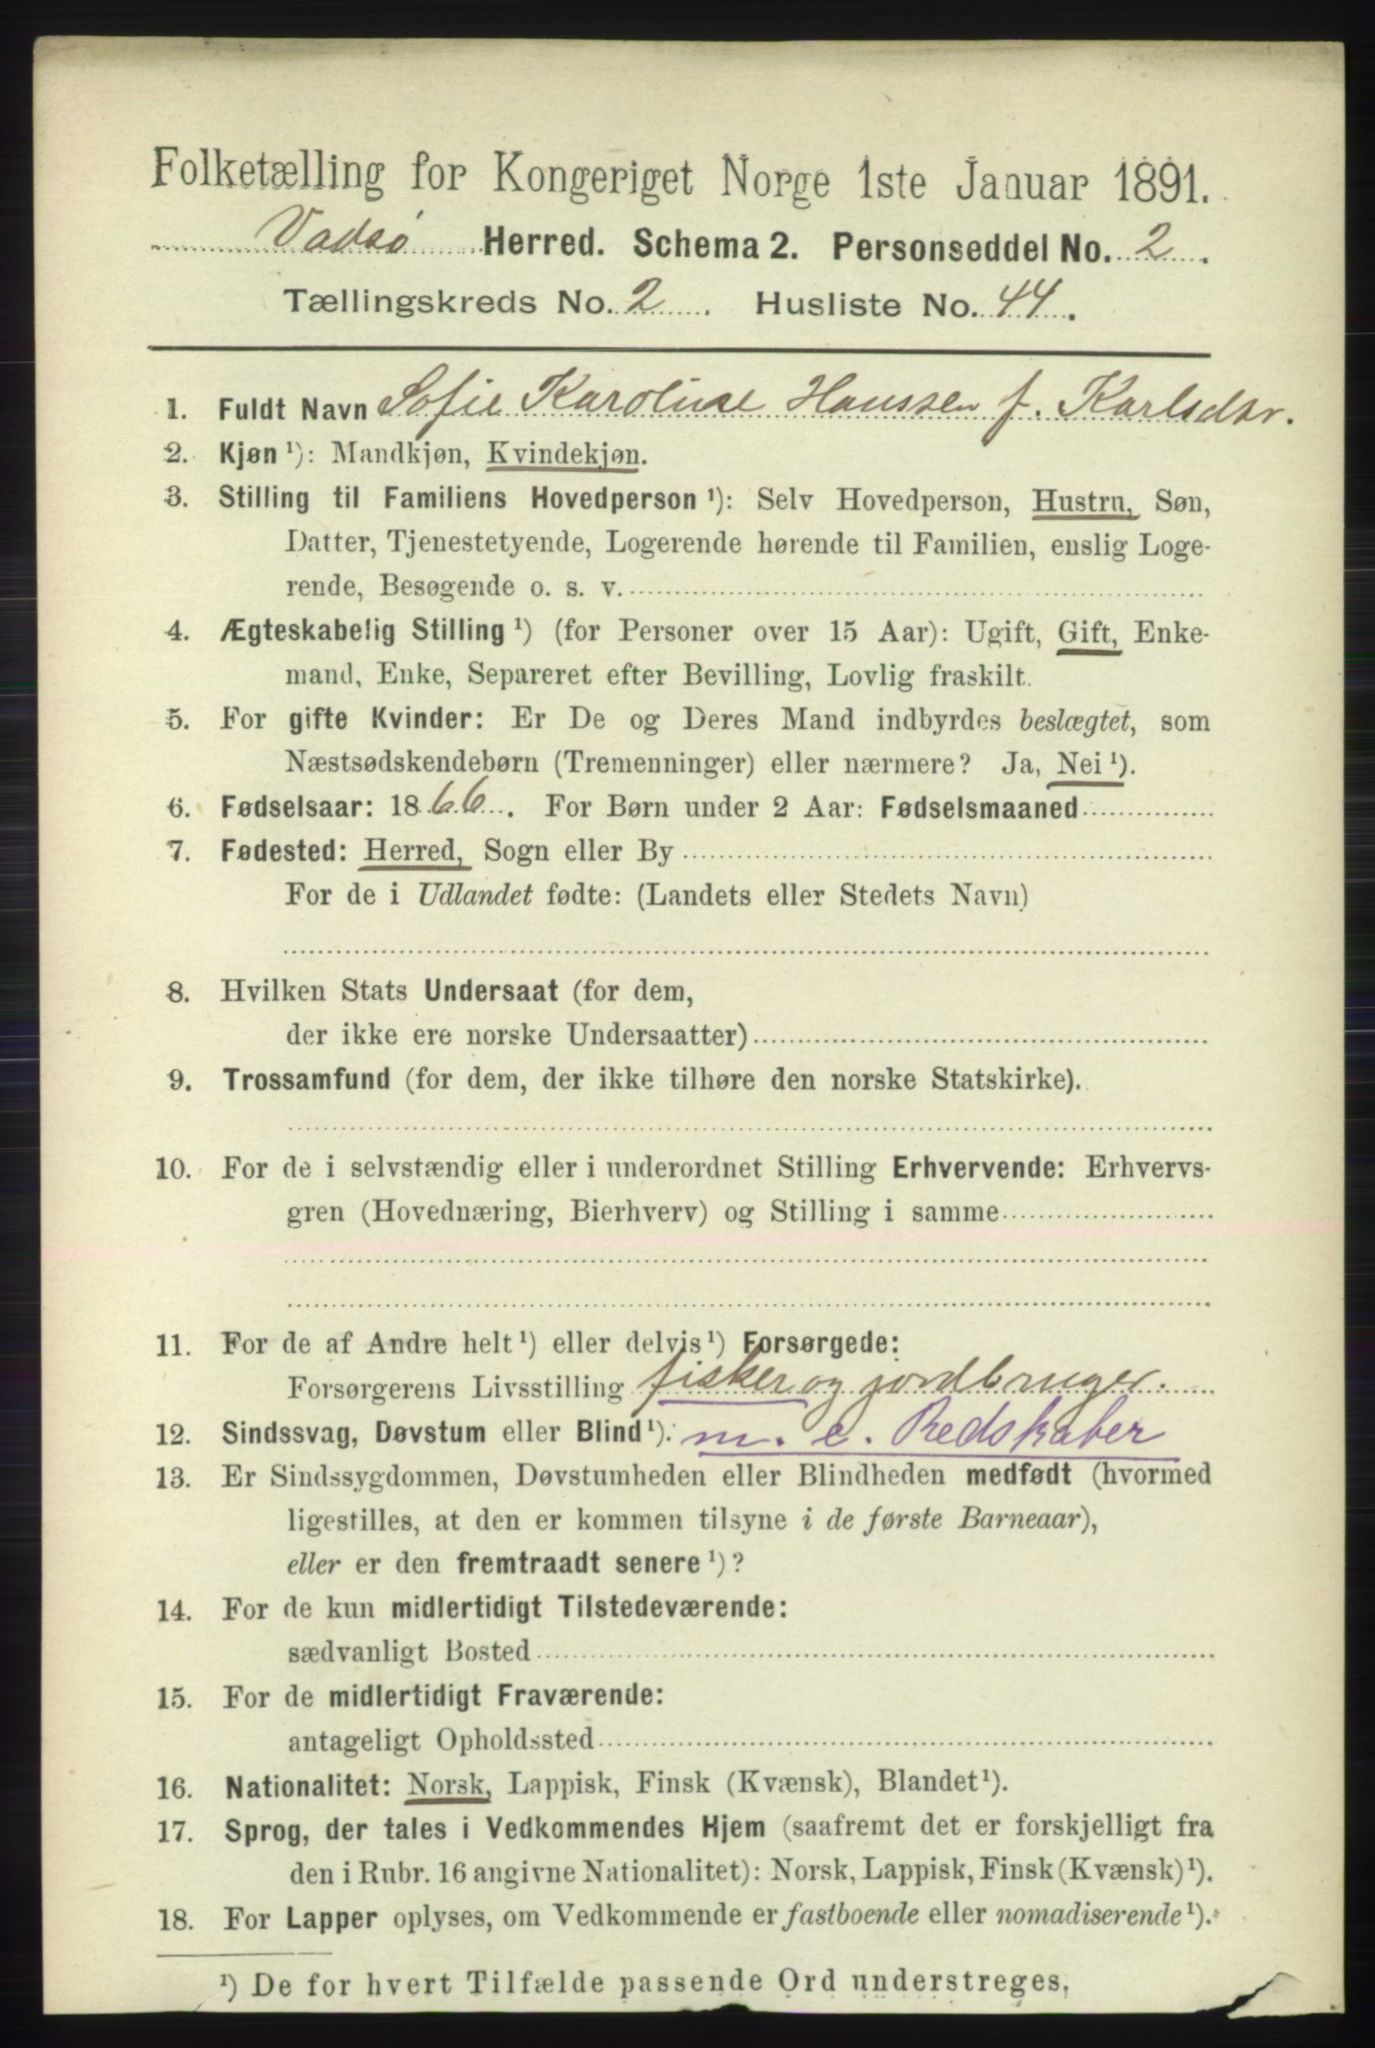 Folketælling for Kongeriget Norge 1ste Januar 1891.
Vadsø Herred. Schema 2. Personseddel No. 2.
Tællingskreds No. 2. Husliste No. 44.
1. Fuldt Navn Sofie Karoline Hanssen f. Karlsdtr.
2. Kjøn ¹): Mandkjøn, Kvindekjøn.
3. Stilling til Familiens Hovedperson ¹): Selv Hovedperson, Hustru, Søn,
Datter, Tjenestetyende, Logerende hørende til Familien, enslig Loge-
rende, Besøgende o. s. v.
4. Ægteskabelig Stilling ¹) (for Personer over 15 Aar): Ugift, Gift, Enke-
mand, Enke, Separeret efter Bevilling, Lovlig fraskilt.
5. For gifte Kvinder: Er De og Deres Mand indbyrdes beslægtet, som
Næstsødskendebørn (Tremenninger) eller nærmere? Ja, Nei ¹).
6. Fødselsaar: 1866. For Børn under 2 Aar: Fødselsmaaned
7. Fødested: Herred, Sogn eller By
For de i Udlandet fødte: (Landets eller Stedets Navn)
8. Hvilken Stats Undersaat (for dem,
der ikke ere norske Undersaatter)
9. Trossamfund (for dem, der ikke tilhøre den norske Statskirke).
10. For de i selvstændig eller i underordnet Stilling Erhvervende: Erhvervs-
gren (Hovednæring, Bierhverv) og Stilling i samme
11. For de af Andre helt ¹) eller delvis ¹) Forsørgede:
Forsørgerens Livsstilling fisker og jordbruger.
12. Sindssvag, Døvstum eller Blind ¹). m. e. Redskaber
13. Er Sindssygdommen, Døvstumheden eller Blindheden medfødt (hvormed
ligestilles, at den er kommen tilsyne i de første Barneaar),
eller er den fremtraadt senere ¹)?
14. For de kun midlertidigt Tilstedeværende:
sædvanligt Bosted
15. For de midlertidigt Fraværende:
antageligt Opholdssted
16. Nationalitet: Norsk, Lappisk, Finsk (Kvænsk), Blandet ¹).
17. Sprog, der tales i Vedkommendes Hjem (saafremt det er forskjelligt fra
den i Rubr. 16 angivne Nationalitet): Norsk, Lappisk, Finsk (Kvænsk) ¹).
18. For Lapper oplyses, om Vedkommende er fastboende eller nomadiserende ¹).
¹) De for hvert Tilfælde passende Ord understreges.